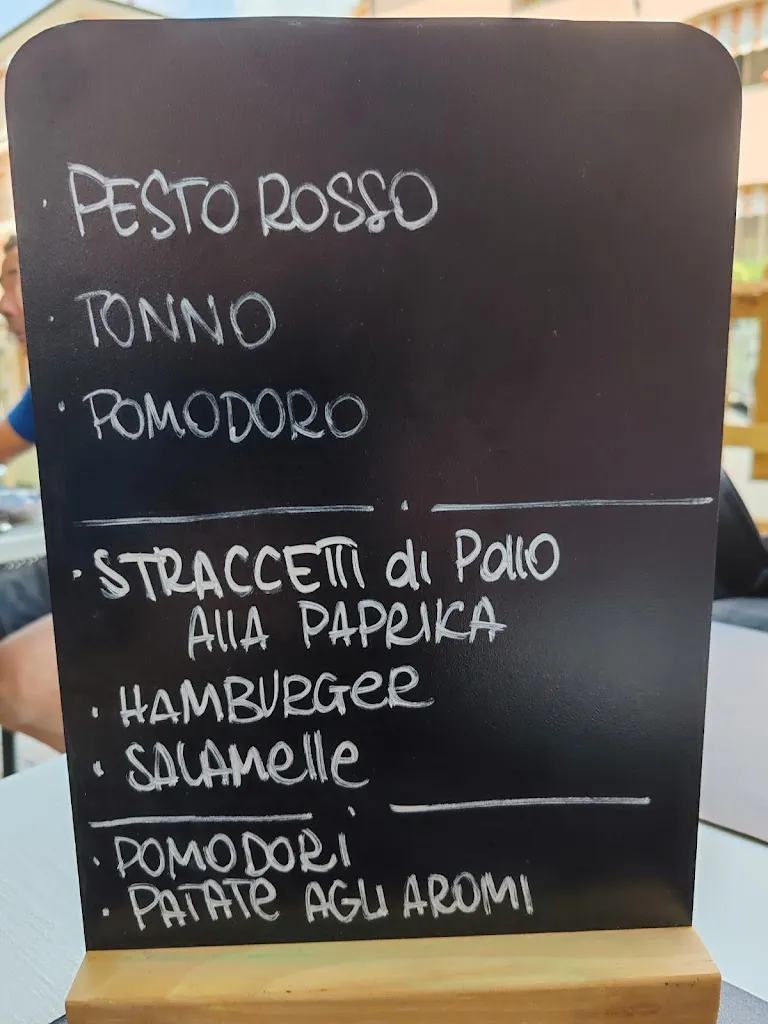 · PESTO ROSSO
· TONNO
· POMODORO
· STRACCETTI di POllO
AllA PAPRIKA
· HAMBURGeR
· SALAMelle
· POMODORI
· PATATe AGLI AROMI